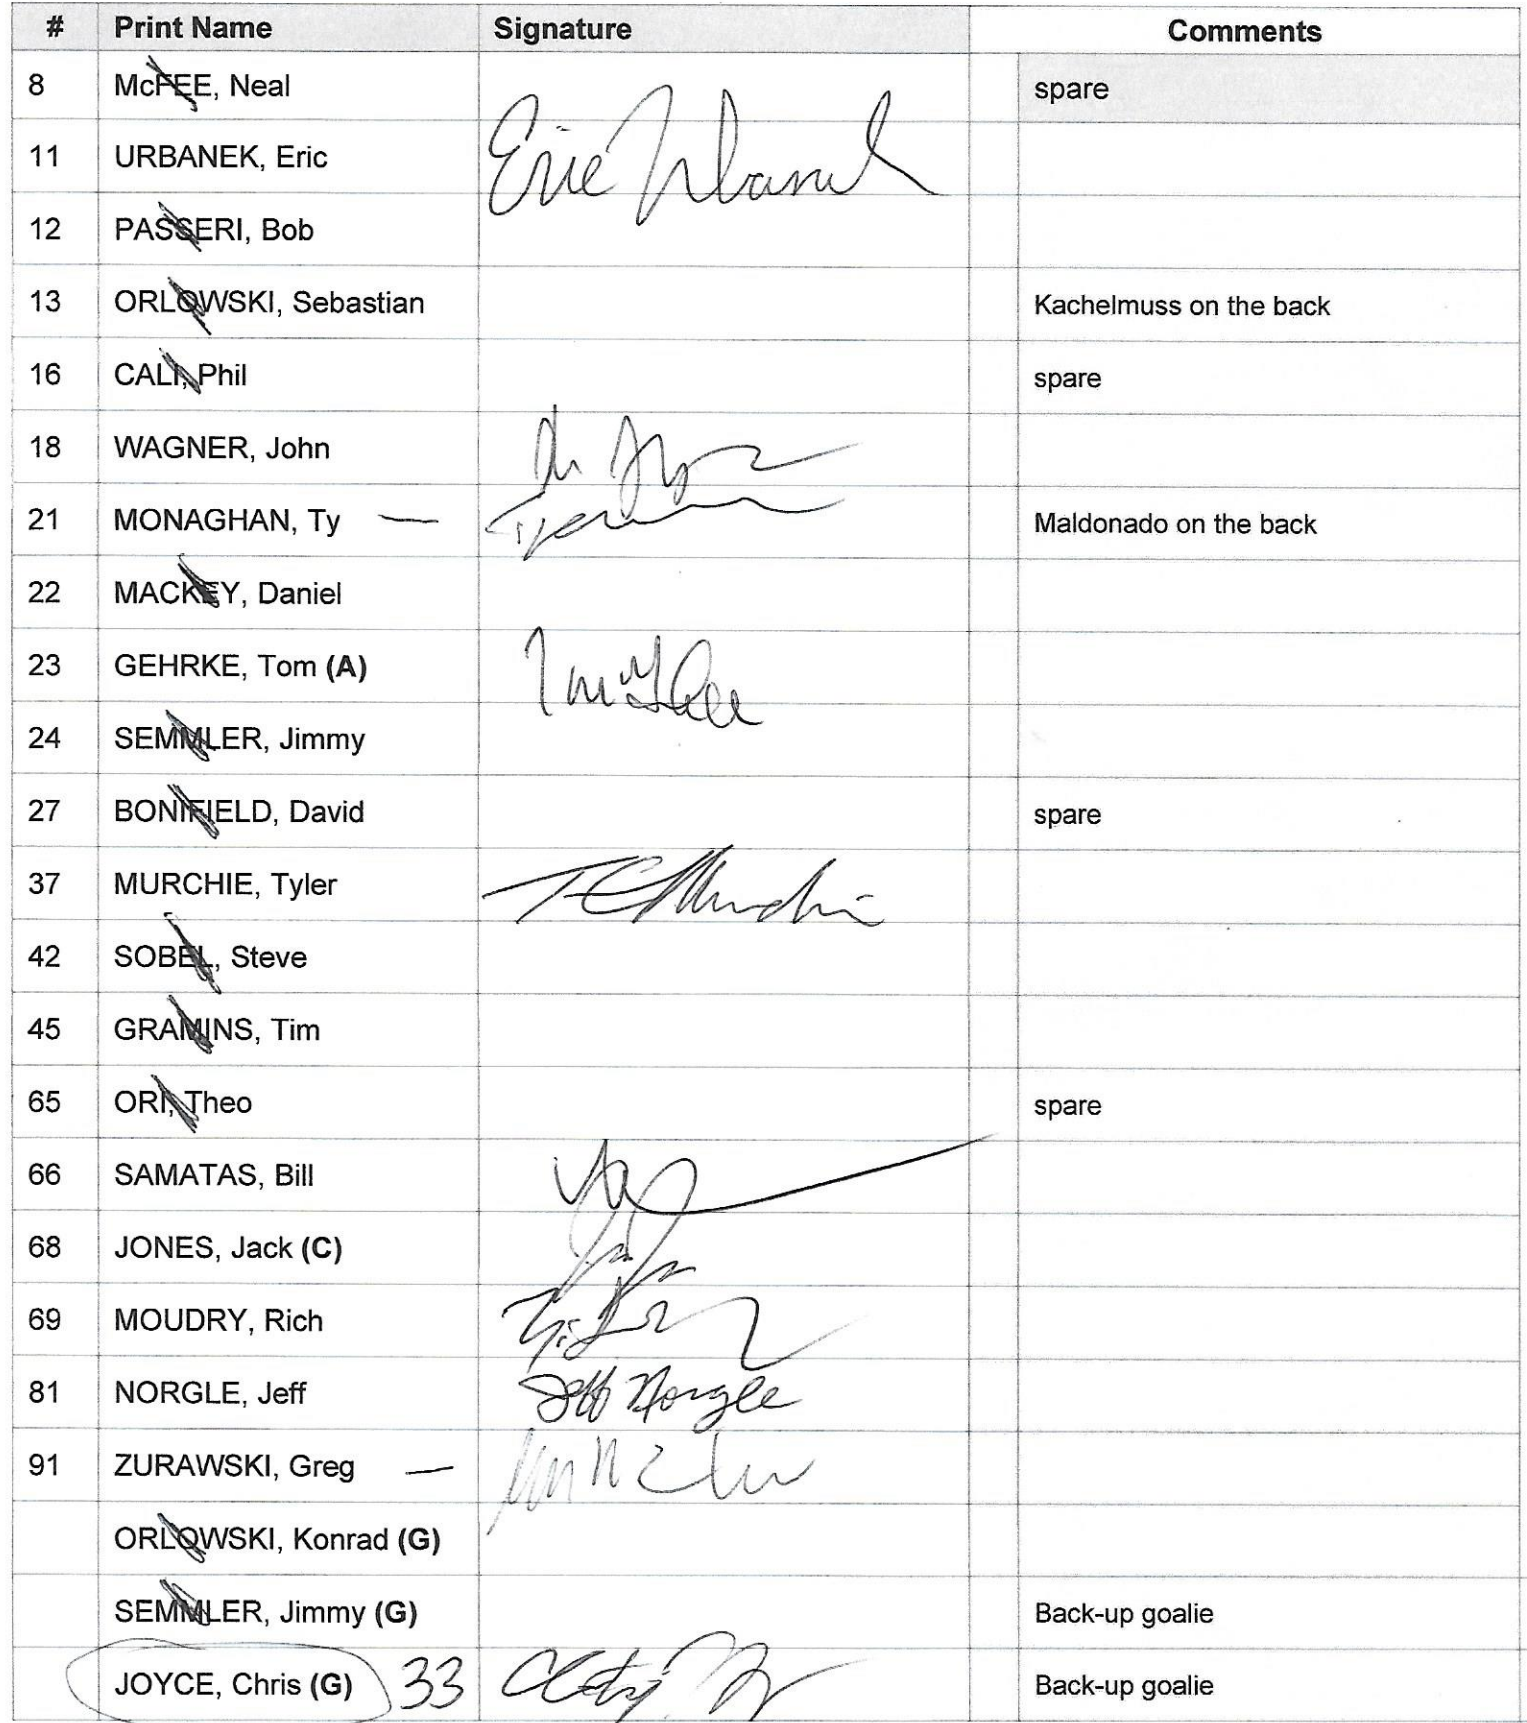 # Print Name Signature Comments
8 McFEE, Neal spare
11 URBANEK, Eric Eric Urbanek
12 PASSERI, Bob
13 ORLOWSKI, Sebastian Kachelmuss on the back
16 CALI, Phil spare
18 WAGNER, John
21 MONAGHAN, Ty — Maldonado on the back
22 MACKEY, Daniel
23 GEHRKE, Tom (A)
24 SEMMLER, Jimmy
27 BONIFIELD, David spare
37 MURCHIE, Tyler
42 SOBEL, Steve
45 GRAMINS, Tim
65 ORI, Theo spare
66 SAMATAS, Bill
68 JONES, Jack (C)
69 MOUDRY, Rich
81 NORGLE, Jeff Jeff Norgle
91 ZURAWSKI, Greg —
ORLOWSKI, Konrad (G)
SEMMLER, Jimmy (G) Back-up goalie
JOYCE, Chris (G) 33 Back-up goalie